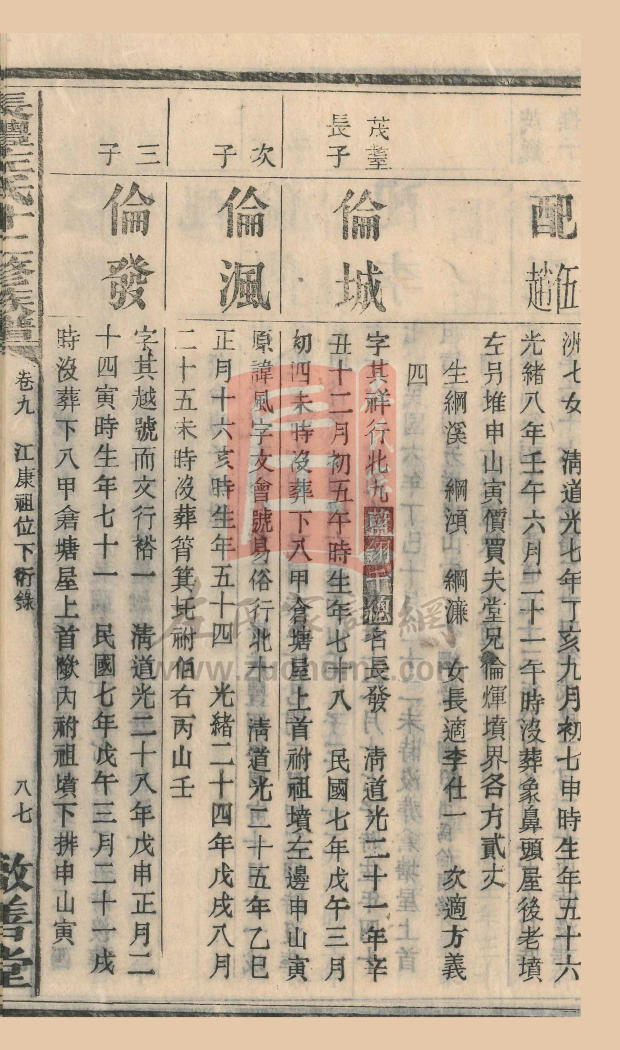 配伍趙
洲七女 清道光七年丁亥九月初七申時生年五十六
光緒八年壬午六月二十一午時沒葬象鼻頭屋後老墳
左另堆申山寅價買夫堂兄倫煇墳界各方貳丈
生綱溪 綱澒 綱濂 女長適李仕一 次適方義
四
茂臺長子
倫城
字其祥行北九藍翎千總名長發 清道光二十一年辛
丑十二月初五午時生年七十八 民國七年戊午三月
初四未時沒葬下八甲倉塘屋上首祔祖墳左邊申山寅
次子
倫渢
原諱風字文會號易俗行北十 清道光二十五年乙巳
正月十六亥時生年五十四 光緒二十四年戊戌八月
二十五未時沒葬筲箕坵祔伯右丙山壬
三子
倫發
字其越號而文行裕一 清道光二十八年戊申正月二
十四寅時生年七十一 民國七年戊午三月二十一戌
時沒葬下八甲倉塘屋上首墘內祔祖墳下排申山寅
氏十二修族譜
卷九 江康祖位下衍錄
八七
敦善堂
左氏家譜網
www.zuohome.com